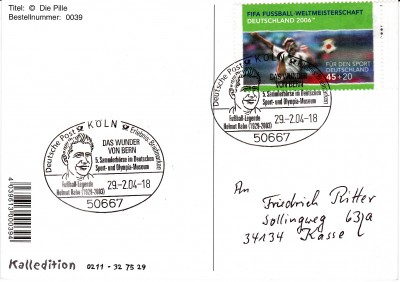 Titel: © Die Pille
Bestellnummer: 0039
FIFA FUSSBALL WELTMEISTERSCHAFT
DEUTSCHLAND 2006
FÜR DEN SPORT
DEUTSCHLAND
45+20
Deutsche Post KÖLN Erlebnis: Briefmarken
DAS WUNDER
VON BERN
5. Sammlerbörse im Deutschen
Sport- und Olympia-Museum
Fußball-Legende
Helmut Rahn (1929-2003)
29.-2.04-18
50667
Deutsche Post KÖLN Erlebnis: Briefmarken
DAS WUNDER
VON BERN
5. Sammlerbörse im Deutschen
Sport- und Olympia-Museum
Fußball-Legende
Helmut Rahn (1929-2003)
29.-2.04-18
50667
An
Friedrich Ritter
Sollingweg 63a
34134 Kassel
Kalledition 0211 - 32 75 29